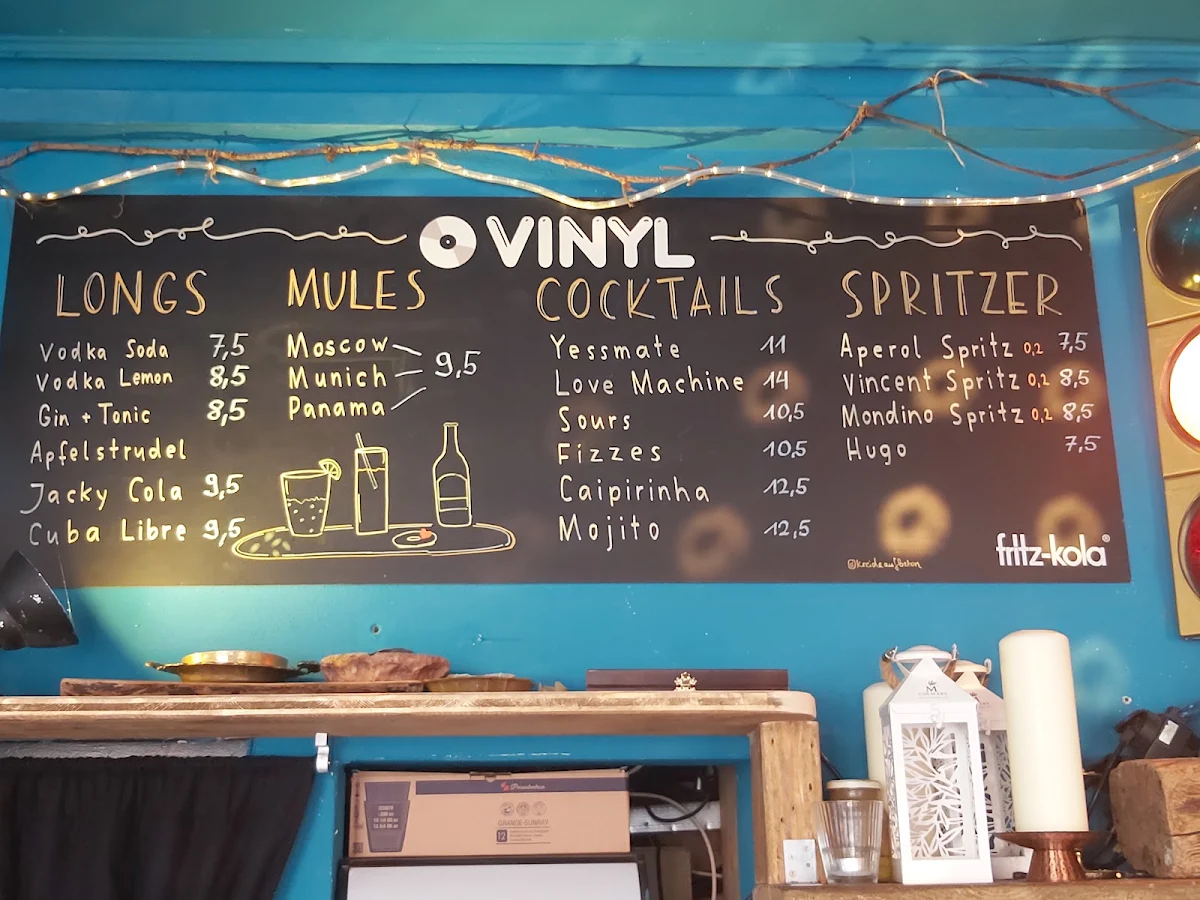 VINYL
LONGS
Vodka Soda 7,5
Vodka Lemon 8,5
Gin + Tonic 8,5
Apfelstrudel
Jacky Cola 9,5
Cuba Libre 9,5
MULES
Moscow
Munich 9,5
Panama
COCKTAILS
Yessmate 11
Love Machine 14
Sours 10,5
Fizzes 10,5
Caipirinha 12,5
Mojito 12,5
SPRITZER
Aperol Spritz 0,2 7,5
Vincent Spritz 0,2 8,5
Mondino Spritz 0,2 8,5
Hugo 7,5
@kreideaufbeton
fritz-kola®
GRANDE-SUNRAY
12
M